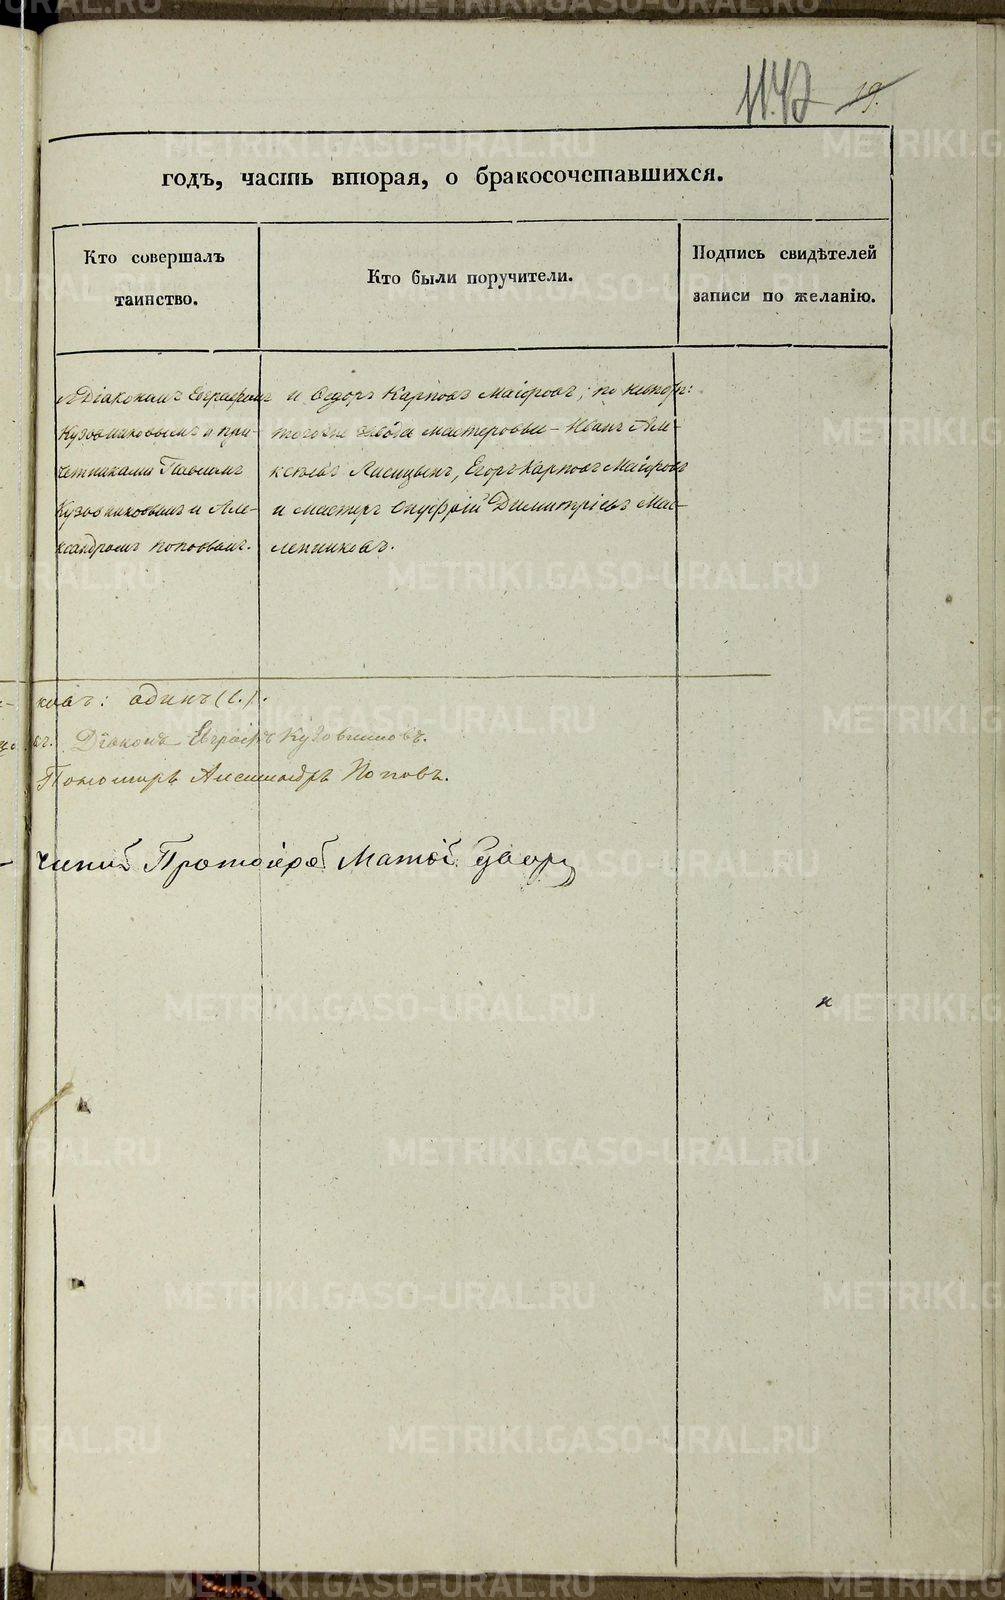 1142 19.
годъ, часть вторая, о бракосочетавшихся.
Кто совершалъ
таинство.
Кто были поручители.
Подпись свидѣтелей
записи по желанію.
Діакономъ Евграфомъ
Кузовниковымъ и при-
четниками Павломъ
Кузовниковымъ и Але-
ксандромъ Поповымъ.
и Ѳедоръ Карповъ ; по невѣст:
мастеровые - Иванъ Але-
ксѣевъ Лисицынъ, Егоръ Карповъ
и мастеръ Онуфрій Димитріевъ Мас-
ленниковъ.
ковъ: одинъ (1.).
Діаконъ Евграфъ Кузовниковъ.
Пономарь Александръ Поповъ.
чинный Протоіерей Матѳей
METRIKI.GASO-URAL.RU